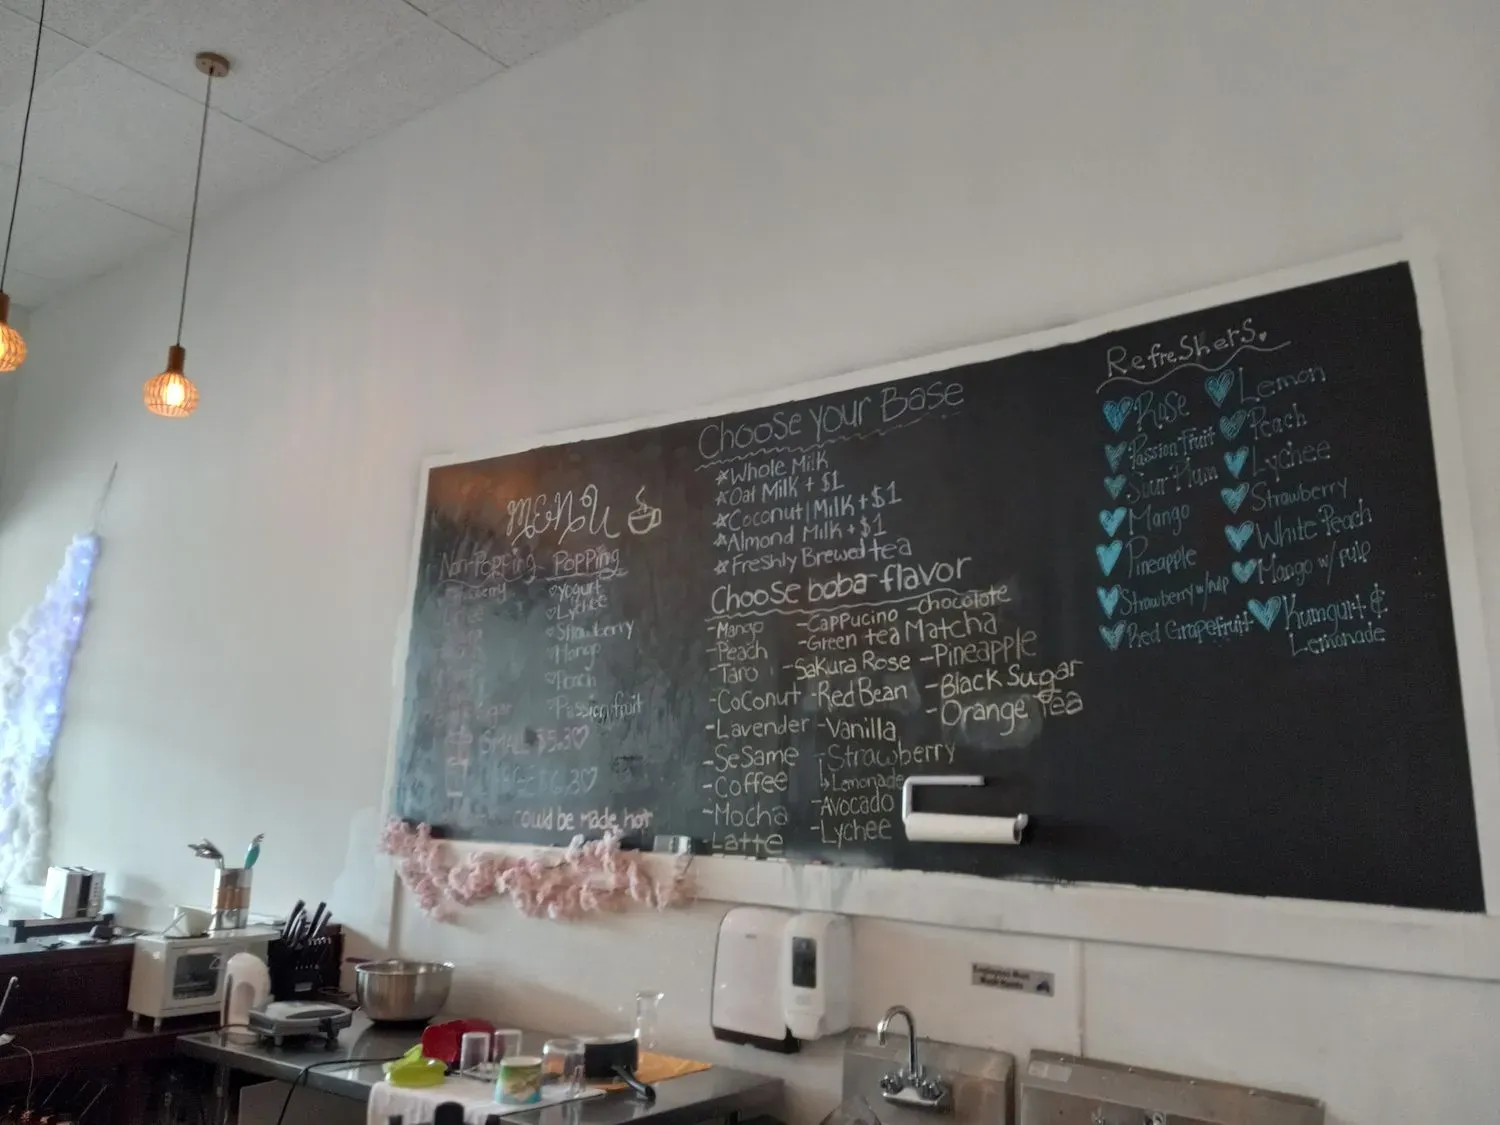 MENU
Non-Popping Popping
Yogurt
Lychee
Strawberry
Mango
Peach
Passion fruit
SMALL $5.30
6.30
could be made hot
Choose your Base
Whole Milk
Oat Milk + $1
Coconut Milk + $1
Almond Milk + $1
Freshly Brewed tea
Choose boba flavor
-Mango
-Peach
-Taro
-CoConut
-Lavender
-SeSame
-Coffee
-Mocha
-Latte
-Cappucino
-Green tea Matcha
-Sakura Rose
-Red Bean
-Vanilla
-Strawberry
Lemonade
-Avocado
-Lychee
-chocolote
-Pineapple
-Black Sugar
-Orange Tea
Refreshers
Rose
Passion Fruit
Sour Plum
Mango
Pineapple
Strawberry w/pulp
Red Grapefruit
Lemon
Peach
Lychee
Strawberry
White Peach
Mango w/ pulp
Kumqurt &
Lemonade
Employees Must
Wash Hands